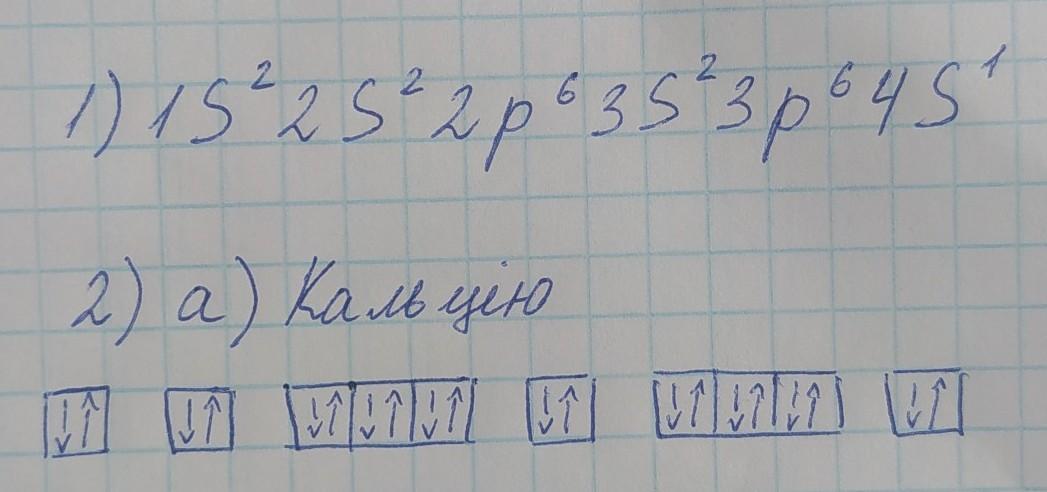 1) 1S²2S²2p⁶3S²3p⁶4S¹
2) а) Кальцію
↓↑ ↓↑ ↓↑↓↑↓↑ ↓↑ ↓↑↓↑↓↑ ↓↑